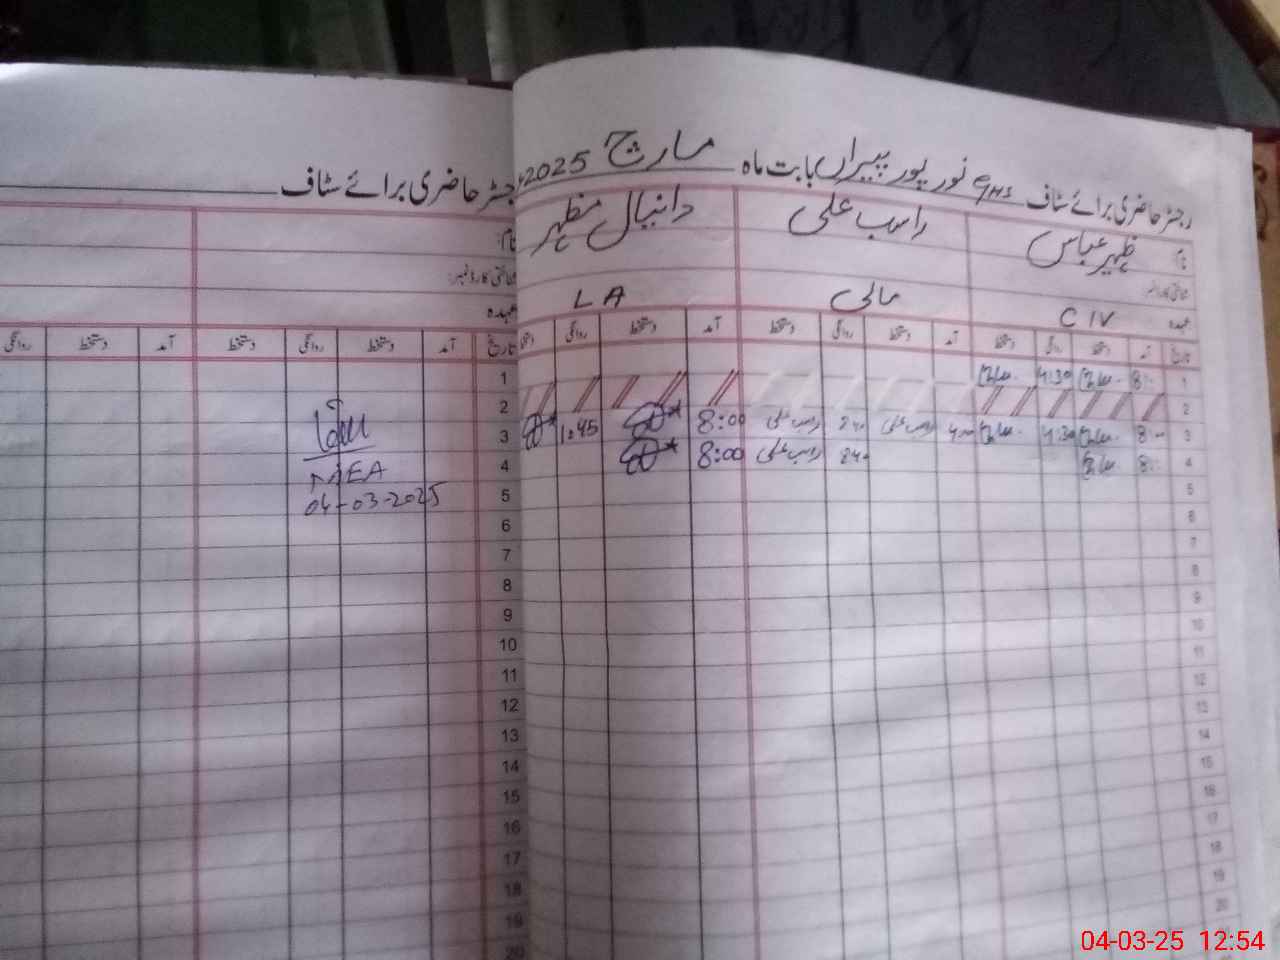 رجسٹر حاضری برائے سٹاف GHS نور پور پیراں بابت ماہ مارچ 2025
نام: ظہیر عباس راسب علی دانیال مظہر
شناختی کارڈ نمبر:
عہدہ C IV مالی L A
تاریخ آمد دستخط روانگی دستخط آمد دستخط روانگی دستخط آمد دستخط روانگی
1 8:00 4:30
2
3 8:00 4:30 4:00 راسب علی 8:00 راسب علی 8:00 1:45
4 8:00 8:00 راسب علی 8:00
5
6
7
8
9
10
11
12
13
14
15
16
17
18
19
20
رجسٹر حاضری برائے سٹاف
نام:
شناختی کارڈ نمبر:
عہدہ
تاریخ آمد دستخط روانگی دستخط آمد دستخط روانگی
1
2
3
4
5
6
7
8
9
10
11
12
13
14
15
16
17
18
19
20
MEA
04-03-2025
04-03-25 12:54